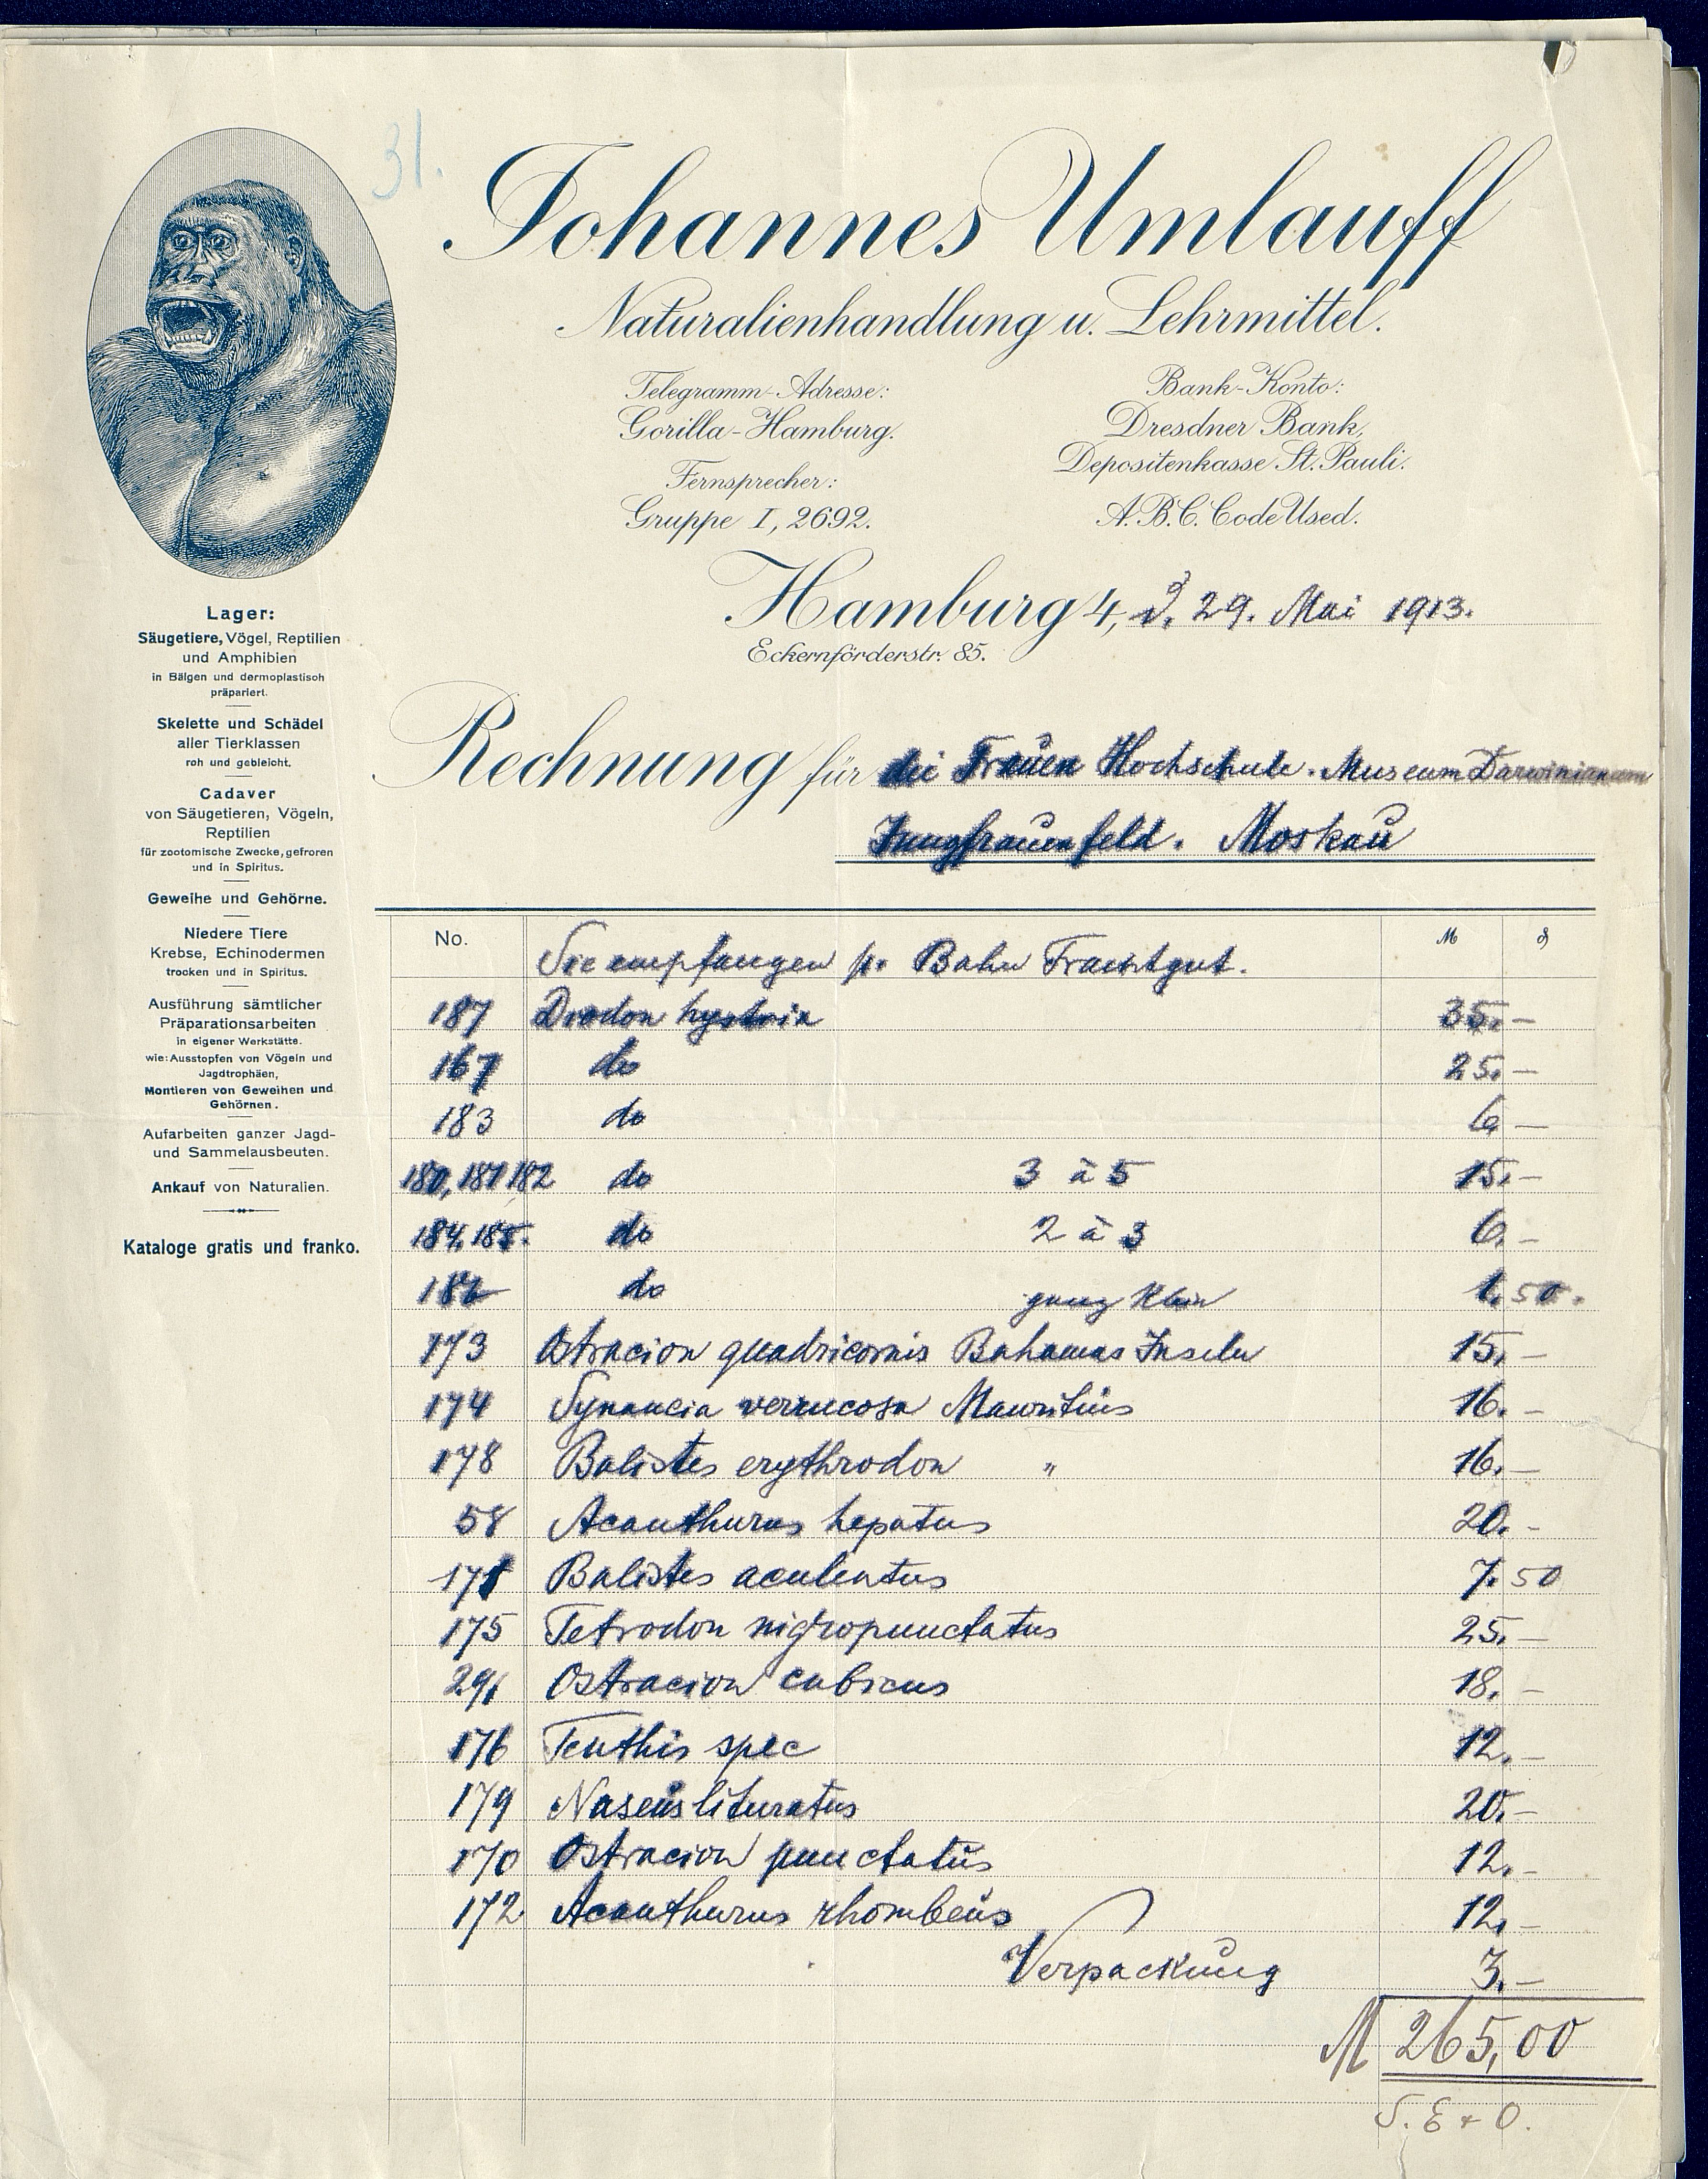 31.
Johannes Umlauff
Naturalienhandlung u. Lehrmittel.
Telegramm-Adresse:
Gorilla-Hamburg.
Fernsprecher:
Gruppe I, 2692.
Bank-Konto:
Dresdner Bank,
Depositenkasse St. Pauli.
A.B.C. Code Used.
Hamburg 4, d. 29. Mai 1913.
Eckernförderstr. 85.
Lager:
Säugetiere, Vögel, Reptilien
und Amphibien
in Bälgen und dermoplastisch
präpariert.
Skelette und Schädel
aller Tierklassen
roh und gebleicht.
Cadaver
von Säugetieren, Vögeln,
Reptilien
für zootomische Zwecke, gefroren
und in Spiritus.
Geweihe und Gehörne.
Niedere Tiere
Krebse, Echinodermen
trocken und in Spiritus.
Ausführung sämtlicher
Präparationsarbeiten
in eigener Werkstätte.
wie: Ausstopfen von Vögeln und
Jagdtrophäen,
Montieren von Geweihen und
Gehörnen.
Aufarbeiten ganzer Jagd-
und Sammelausbeuten.
Ankauf von Naturalien.
Kataloge gratis und franko.
Rechnung für die Frauen Hochschule. Museum Darwinianum
Jungfrauenfeld. Moskau
No. M ₰
Sie empfangen p. Bahn Frachtgut.
187 Diodon hystrix 35.—
167 do 25.—
183 do 6 —
180, 181 182 do 3 à 5 15.—
184, 185. do 2 à 3 6.—
186 do ganz klein 1.50.
173 Ostracion quadricornis Bahamas Inseln 15.—
174 Synancia verrucosa Mauritius 16.—
178 Balistes erythrodon " 16.—
58 Acanthurus hepatus 20.-
171 Balistes aculentus 7.50
175 Tetrodon nigropunctatus 25.—
291 Ostracion cubicus 18.—
176 Teuthis spec 12.—
179 Naseus lituratus 20.—
170 Ostracion punctatus 12.—
172 Acanthurus rhombeus 12.—
Verpackung 3.—
M 265,00
S. E & O.